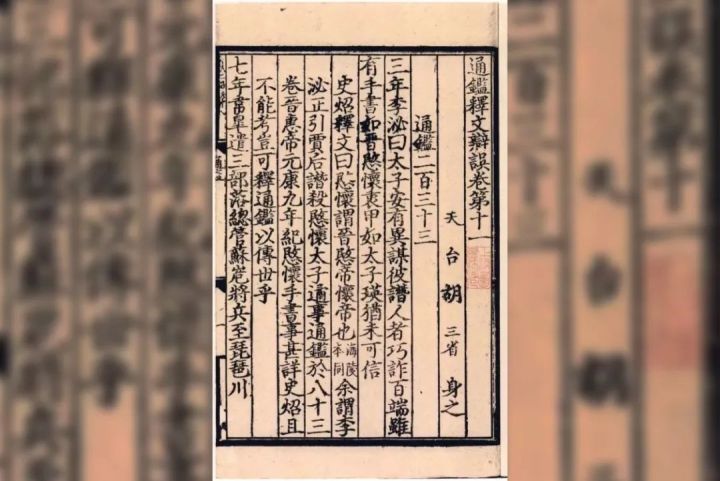 通鑑釋文辯誤卷第十一
天台胡三省身之
通鑑二百三十三
三年李泌曰太子安有異謀彼譖人者巧詐百端雖
有手書如晉愍懷衷甲如太子瑛猶未可信
史炤釋文曰愍懷謂晉愍帝懷帝也海陵本同余謂李
泌正引賈后譖殺愍懷太子通事通鑑於八十三
卷晉惠帝元康九年紀愍懷手書事甚詳史炤且
不能考豈可釋通鑑以傳世乎
七年韋皐遣三部落總管蘇嵬將兵至琵琶川